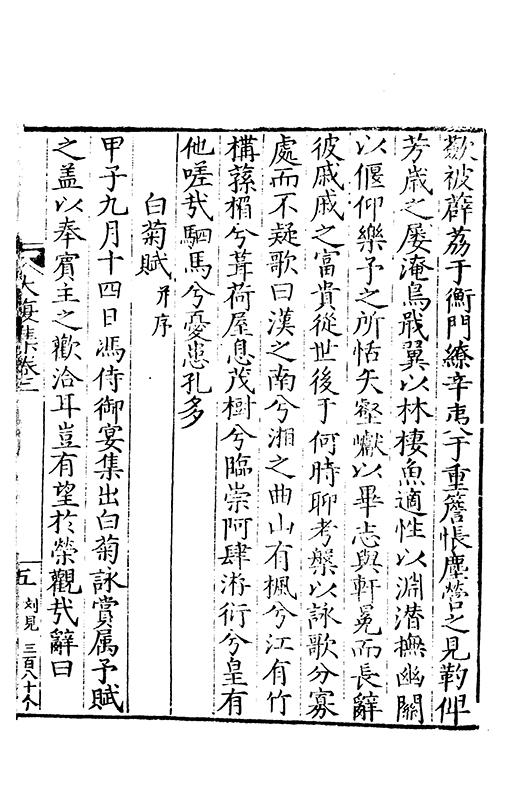 歟被薜荔于衡門繚辛夷于重簷悵塵營之見靮仰
芳歲之屢淹鳥戢翼以林棲魚適性以淵潛撫幽關
以偃仰樂予之所恬矢壑巘以畢志與軒冕而長辭
彼戚戚之富貴從世後于何時聊考槃以詠歌分寡
處而不疑歌曰漢之南兮湘之曲山有楓兮江有竹
構蓀櫋兮葺荷屋息茂樹兮臨崇阿肆游衍兮皇有
他嗟㢤駟馬兮憂患孔多
白菊賦并序
甲子九月十四日馮侍御宴集出白菊詠賞属予賦
之盖以奉賓主之歡洽耳豈有望於榮觀㢤辭曰
大復集卷二
五 刘見 三百八十个